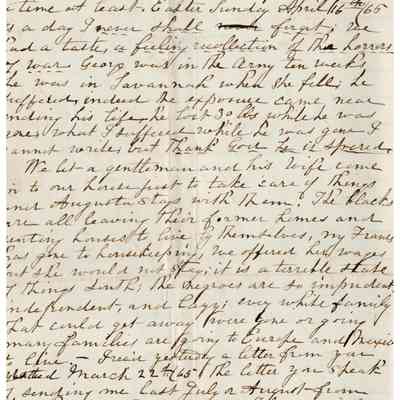 time at least. Easter Sunday April 16th /65
s a day I never shall forget, we
had a taste, a feeling recollection of the horrors
of war. George was in the Army ten weeks
he was in Savannah when she fell; he
suffered, indeed the exposure came near
ending his life, he lost 30 lbs while he was
gone, what I suffered while he was gone I
cannot write, but thank God he is spared.
We let a gentleman and his wife come
in to our house just to take care of things
and Augusta stays with them. The blacks
are all leaving their former homes and
renting houses to live by themselves, my Frances
has gone to housekeeping, we offered her wages
but she would not stay; it is a terrible state
of things South, the negroes are so impudent
independent, and lazy; every white family
that could get away were gone or going
many families are going to Europe and Mexico
to live – I rec'd yesterday a letter from you
dated March 22nd/65. the letter you speak
of, sending me last July or August from